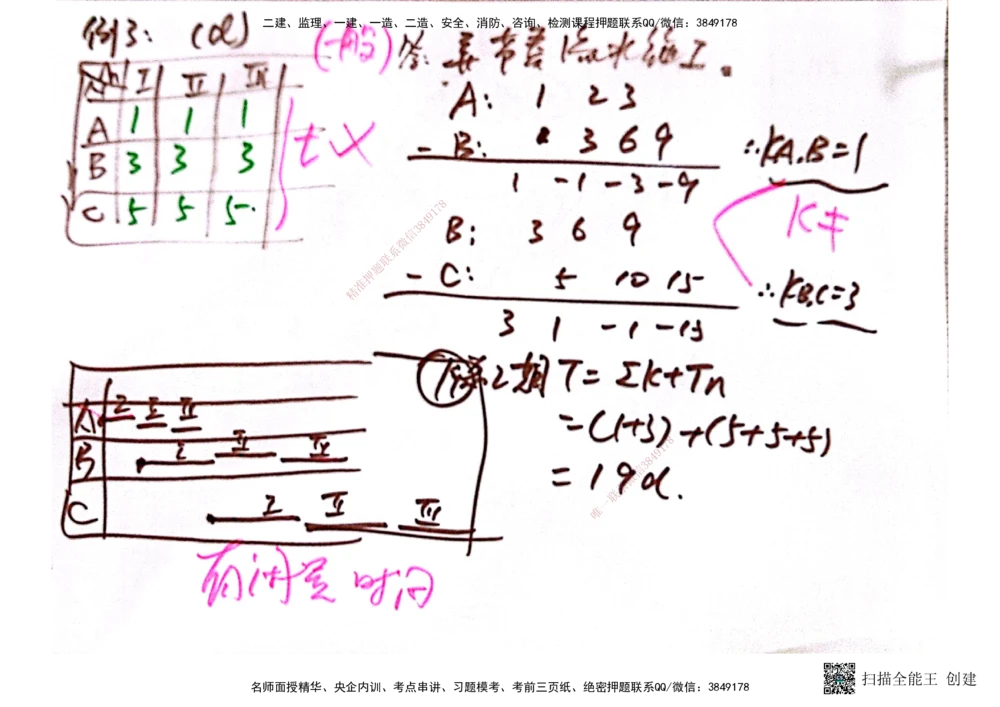 二建、监理、一建、一造、二造、安全、消防、咨询、检测课程押题联系QQ/微信：3849178
例3: (d)
(一般) 答: 异节奏流水施工。
I II III
A 1 1 1
B 3 3 3
C 5 5 5.
t ×
A: 1 2 3
- B: 3 6 9
1 -1 -3 -9
∴KA,B=1
K≠
B: 3 6 9
- C: 5 10 15
3 1 -1 -15
∴KB,C=3
精准押题联系微信3849178
T= ΣK+Tn
=(1+3)+(5+5+5)
=19d.
A I II III
B I II III
C I II III
有闲置时间
名师面授精华、央企内训、考点串讲、习题模考、考前三页纸、绝密押题联系QQ/微信：3849178
扫描全能王 创建